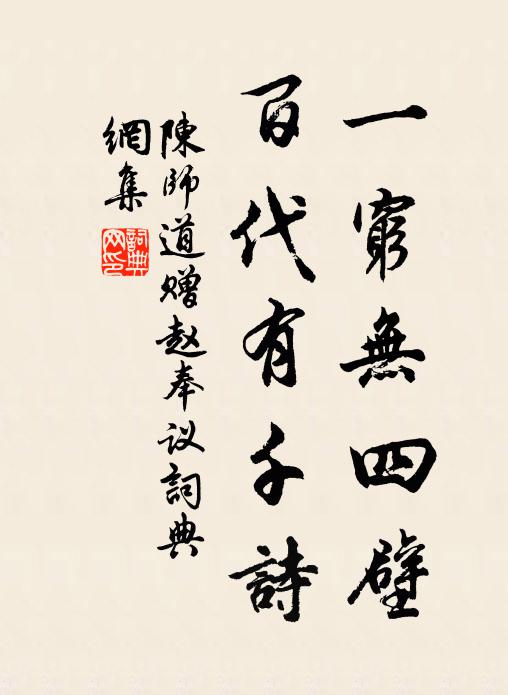 一窮無四壁
百代有千詩
陳師道赠赵奉议詞典
網集
詞典網印